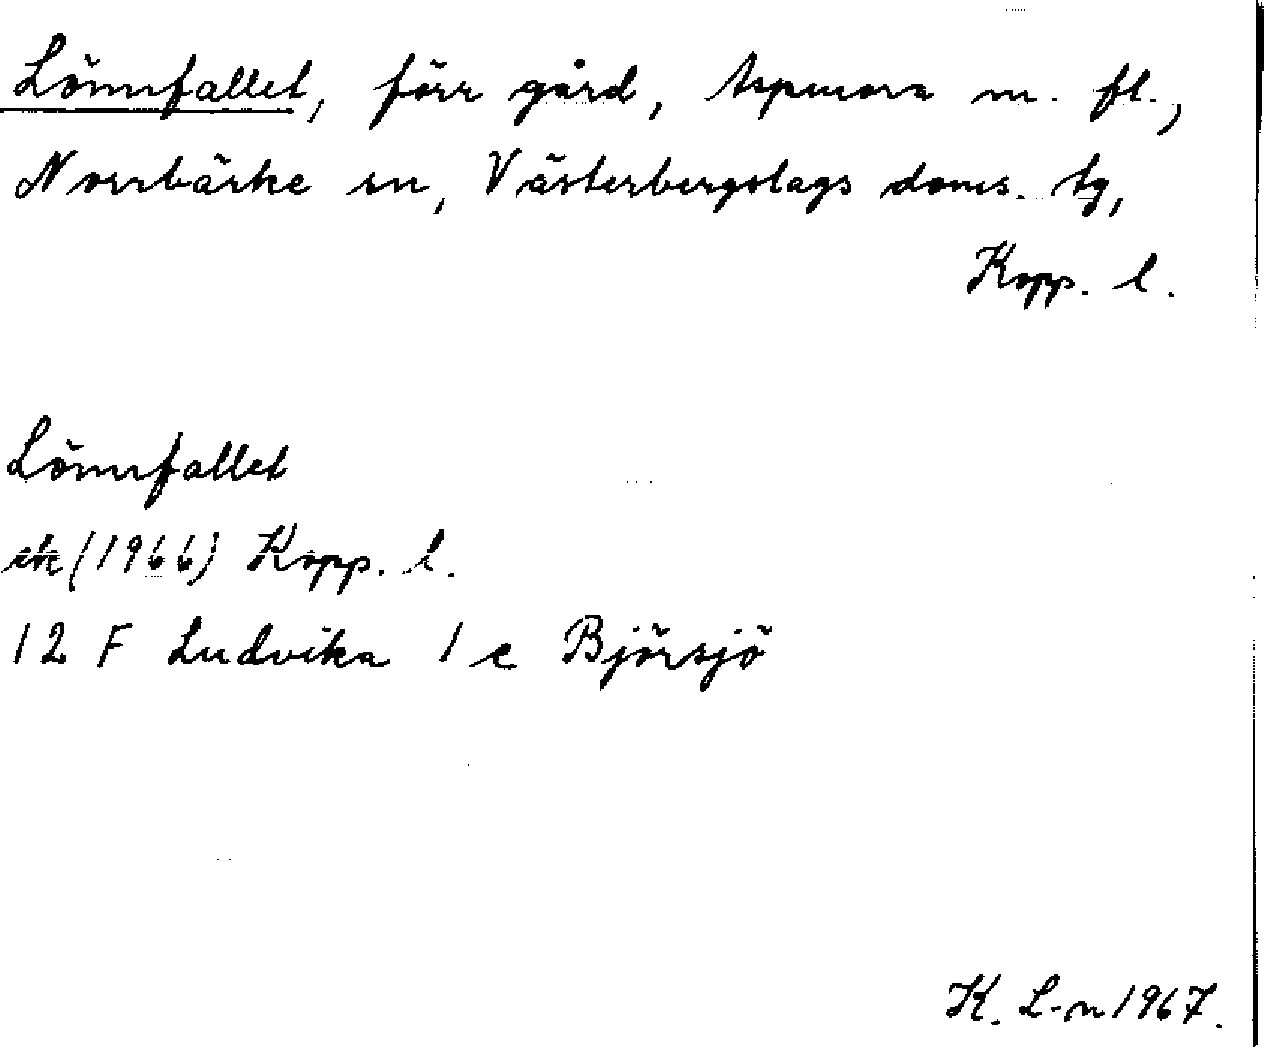 Lönnfallet, förr gård, Aspmora m. fl.,
Norrbärke sn, Västerbergslags doms. tg,
Kopp. l.
Lönnfallet
ek (1966) Kopp. l.
12 F Ludvika 1 c Björsjö
K. L-n 1967.